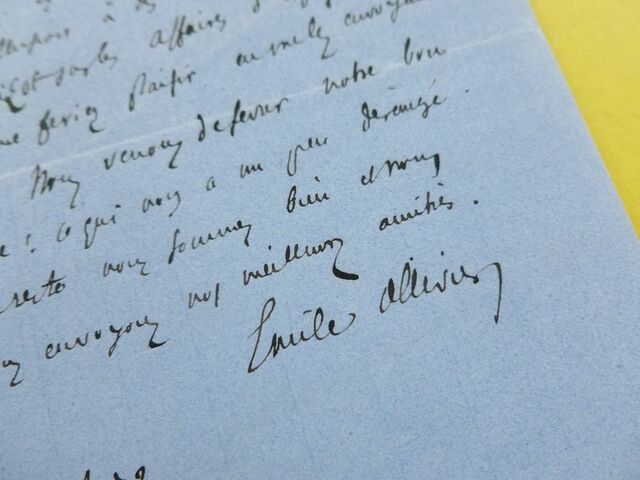 à des
sur les affaires d
me feriez plaisir en me les envoyant
Nous venons de fevrer notre bru
e : ce qui nous a un peu dérangé.
reste nous sommes bien et nous
envoyons nos meilleures amitiés.
Emile Ollivier